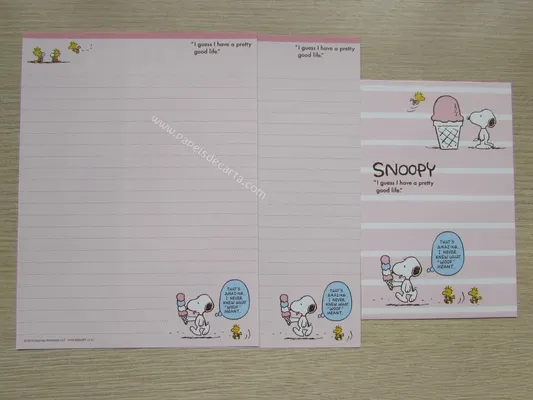 "I guess I have a pretty
good life."
THAT'S
AMAZING..
I NEVER
KNEW WHAT
"WOOF"
MEANT.
"I guess I have a pretty
good life."
THAT'S
AMAZING..
I NEVER
KNEW WHAT
"WOOF"
MEANT.
SNOOPY
"I guess I have a pretty
good life."
THAT'S
AMAZING..
I NEVER
KNEW WHAT
"WOOF"
MEANT.
www.papeisdecarta.com